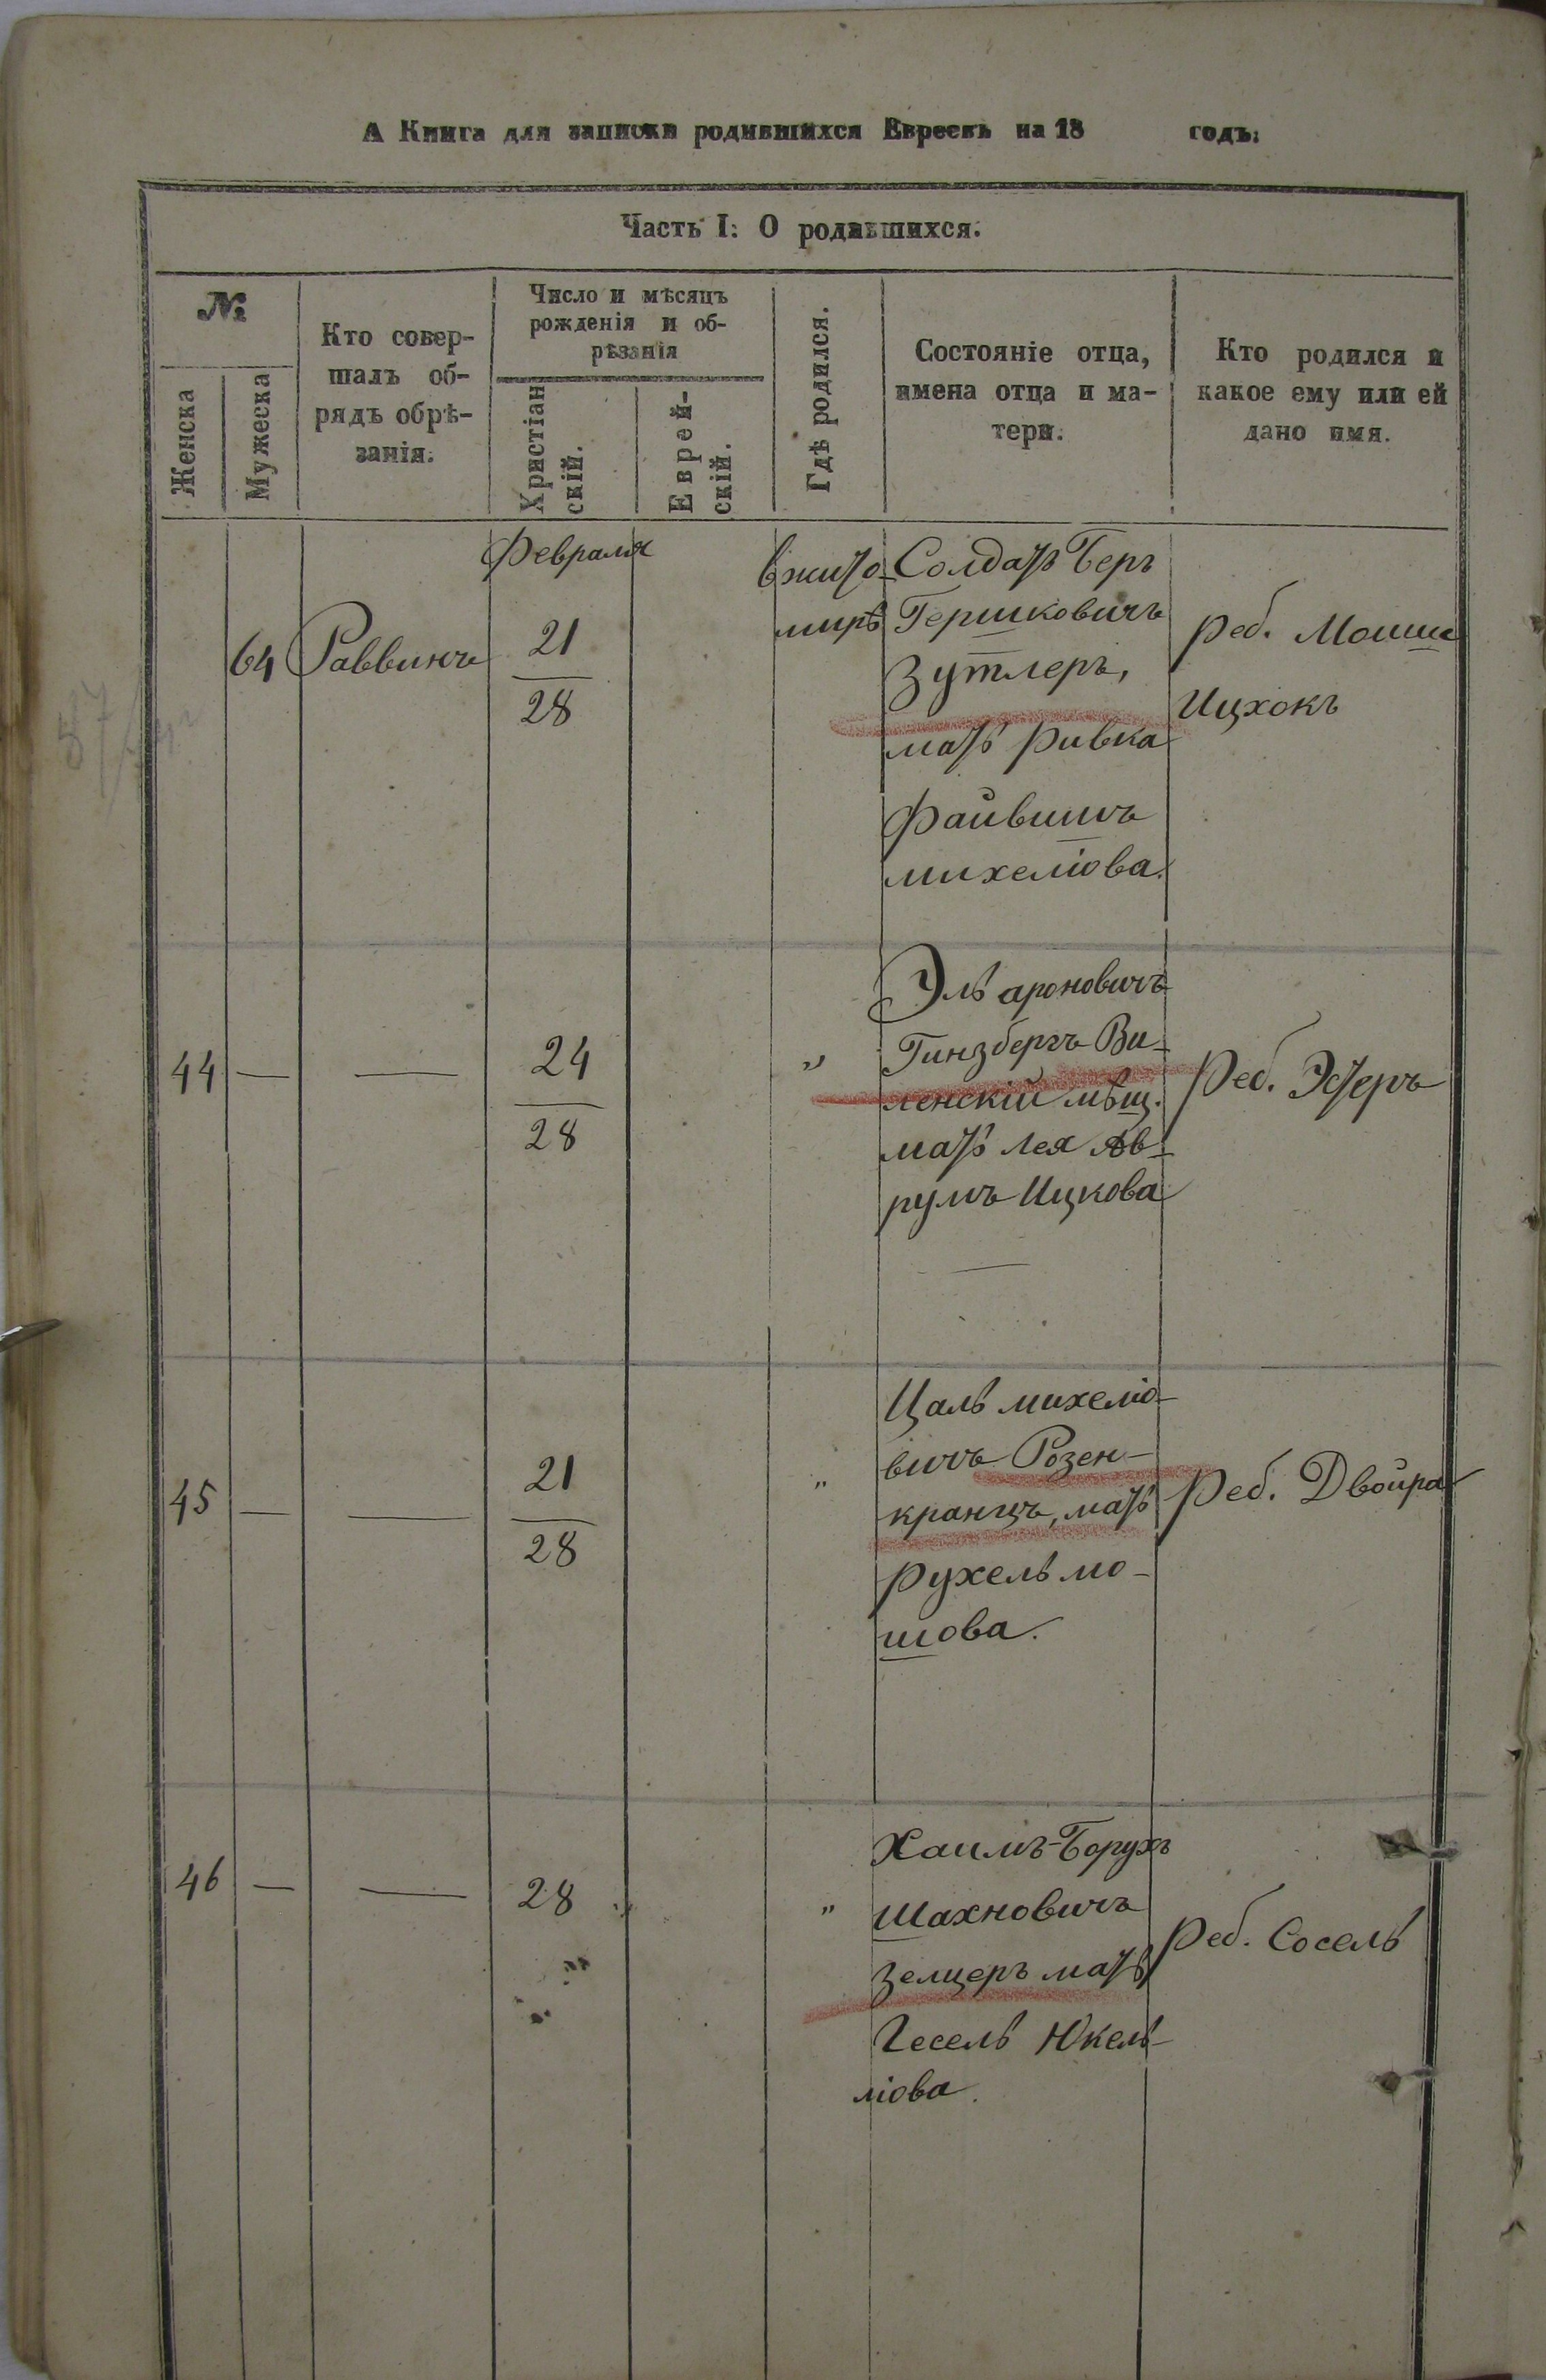 А Книга для записки родившихся Евреевъ на 18 годъ.
Часть I: О родившихся.
№
Женска
Мужеска
Кто совер-
шалъ об-
рядъ обрѣ-
занія.
Число и мѣсяцъ
рожденія и об-
рѣзанія
Христіан
скій.
Еврей-
скій.
Гдѣ родился.
Состояніе отца,
имена отца и ма-
тери.
Кто родился и
какое ему или ей
дано имя.
Февраля
64 Раввинъ
21
28
вжито-
мирѣ
Солдатъ Беръ
Гершковичъ
Зутлеръ,
мать Ривка
Файвишъ
михеліова.
реб. Мошше
Ицхокъ
44 — —
24
28
"
Эль ароновичъ
Гинзбергъ Ви-
ленскій мѣщ.
мать лея Ав-
румъ Ицкова
Реб. Эстеръ
45 — —
21
28
"
Цаль михеліо-
вичъ Розен-
кранцъ, мать
Рухель мо-
шова.
Реб. Двойра
46 — —
28
"
Хаимъ-Борухъ
Шахновичъ
Зелцеръ мать
Гесель Юкель-
ліова.
Реб. Сосель